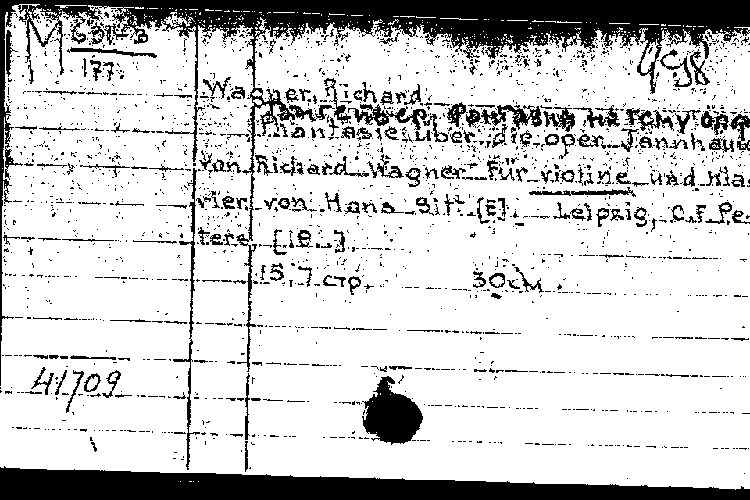 М 631-3
177.
Wagner, Richard.
Фантазия на тему
Phantasie über die oper Tannhäuse
von Richard Wagner für violine und Kla-
vier von Hans Sitt [E]. Leipzig, C.F. Pe-
ters, [18..].
15,7 стр. 30 см.
41709